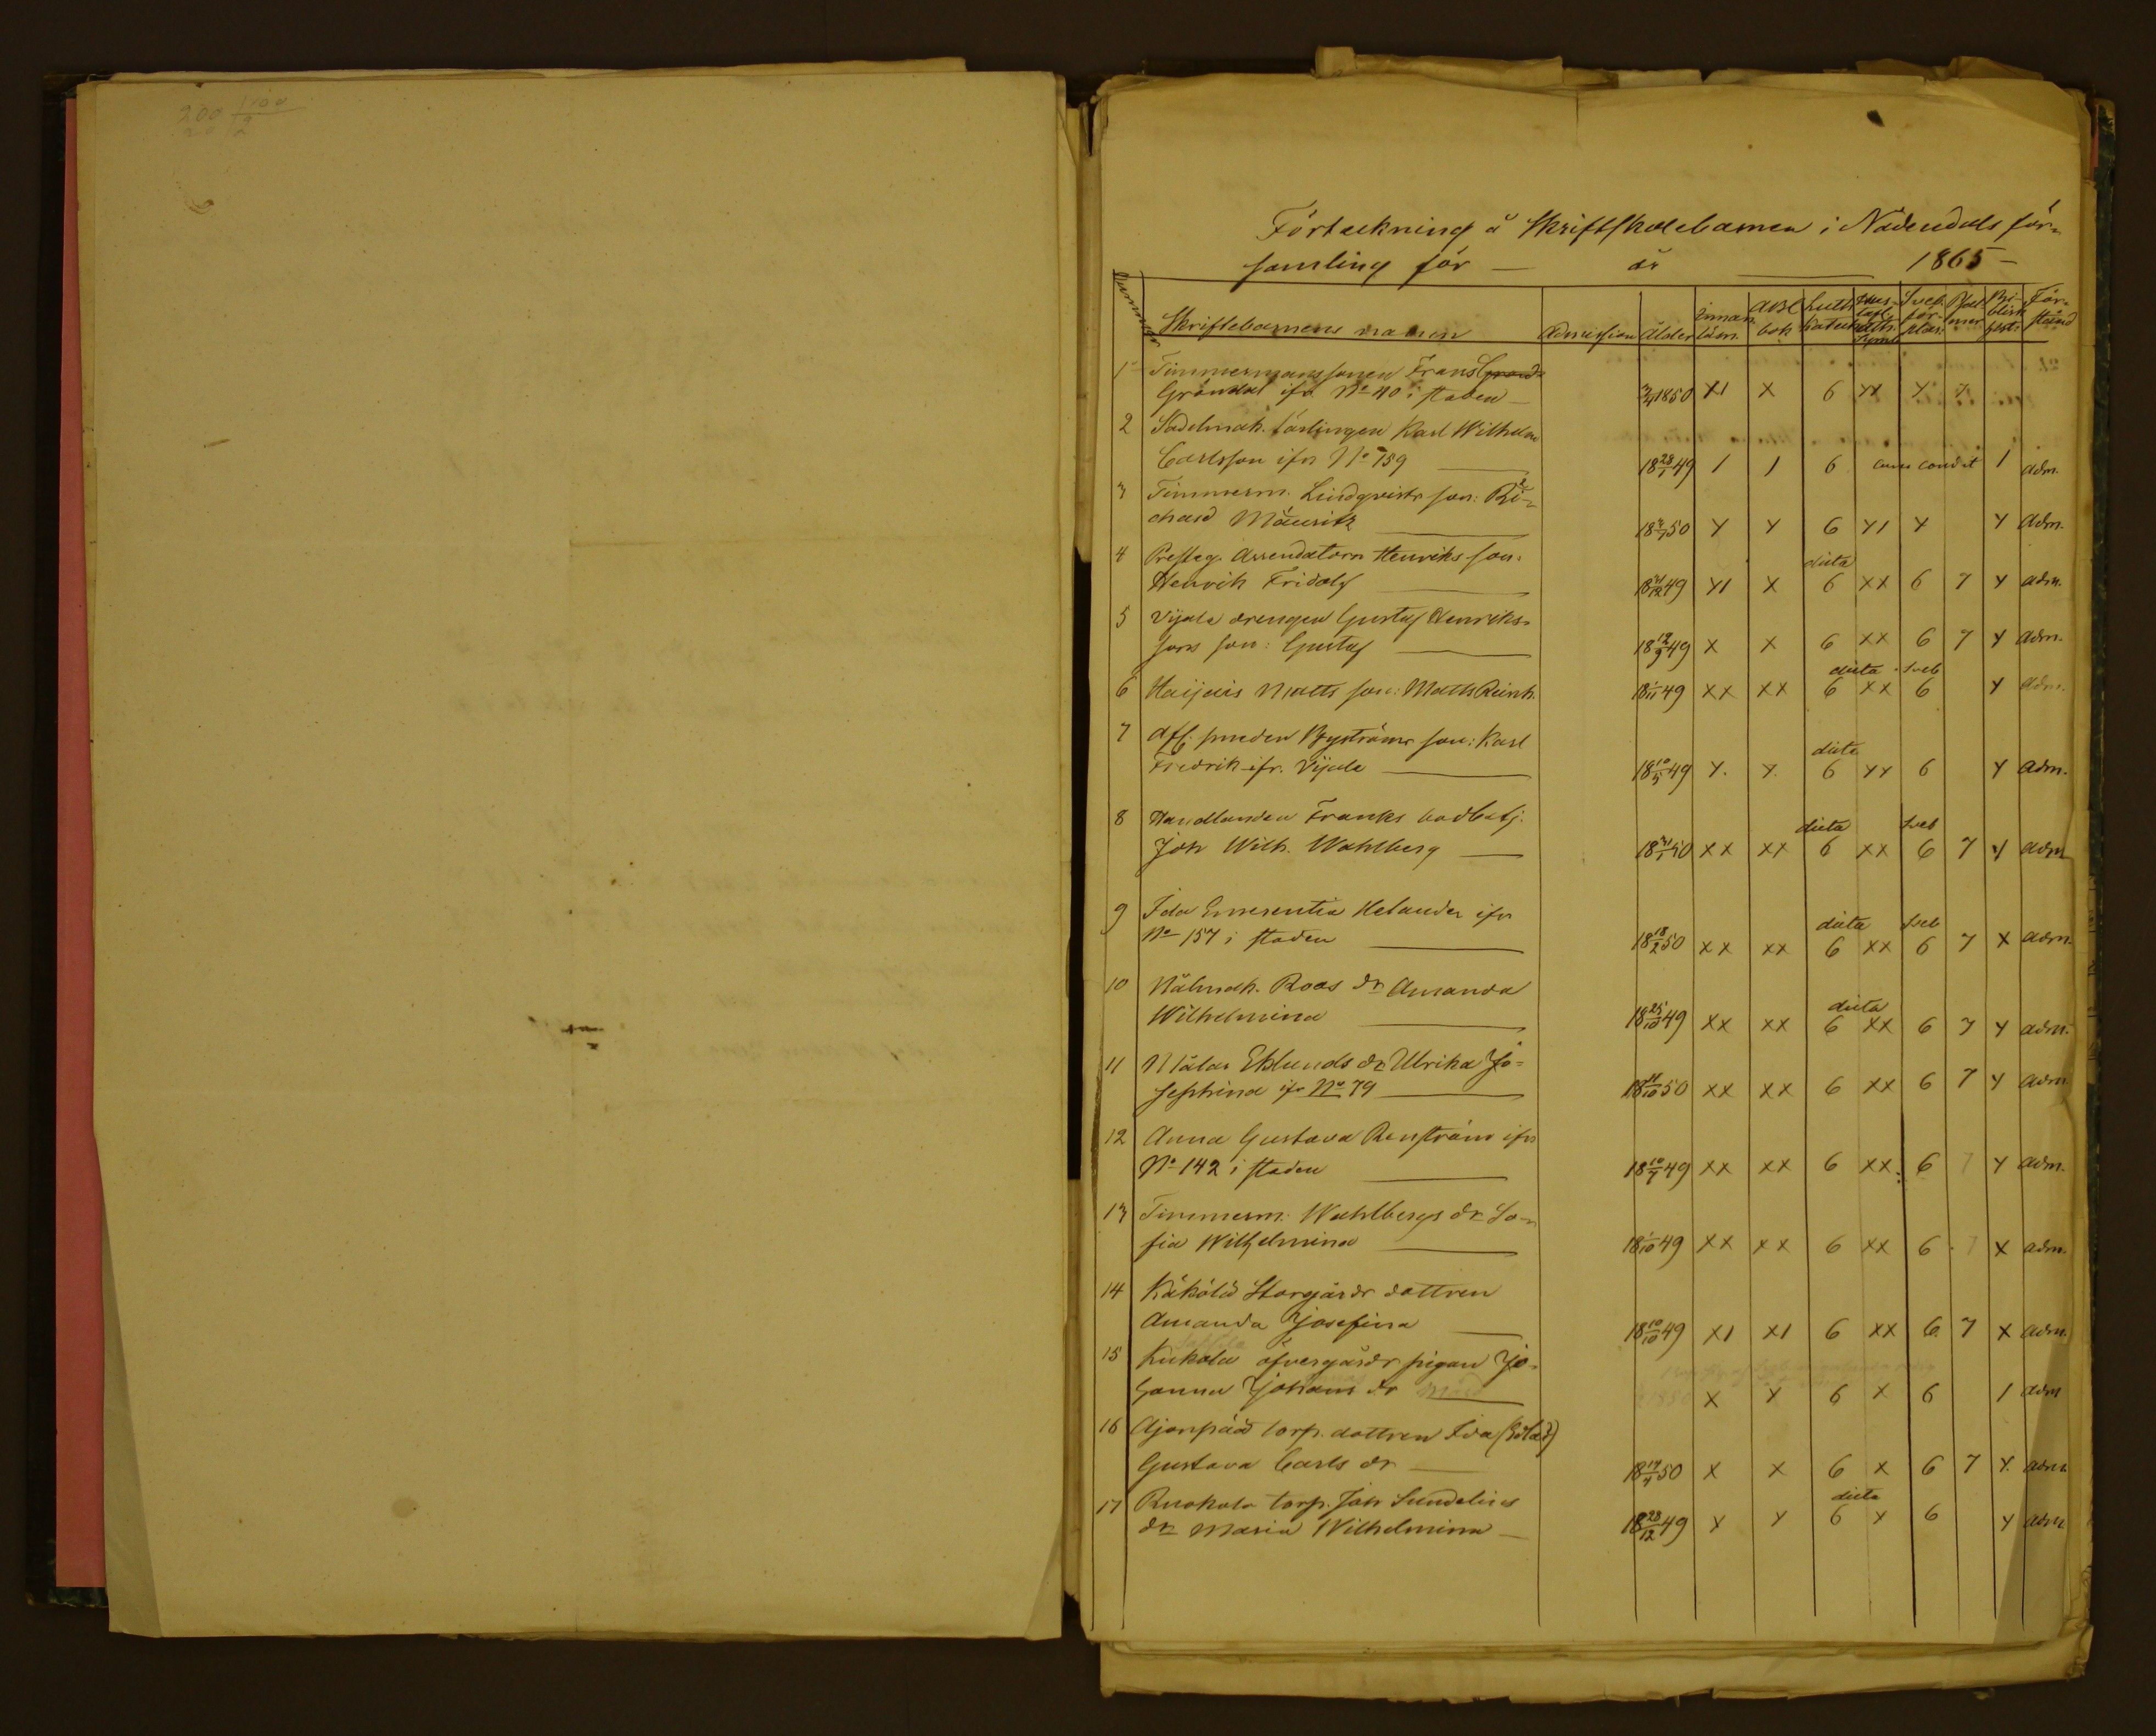 200 1/100
Förteckning å Skriftskolebarnen i Nådendals för-
samling för — år 1865 —
Nummer Skriftebarnens namn Admission Ålder Innan läsn. ABC bok Luth. Katech. Hustafl. Ath. Symb. Sveb. förklar. Psalmer Biblisk hist. Förstånd
1 Timmermanssonen Frans
Gröndal ifr. No 40 i staden — 1850 X1 X 6 XX X 7
2 Sadelmak. lärlingen Karl Wilhelm
Carlsson ifr No 159 — 18 28/1 49 1 1 6 cum condit 1 adm.
3 Timmerm. Lindqvists son: Ri-
chard Mauritz — 18 50 Y Y 6 Y1 Y Y adm.
4 Presteg. Arrendatorn Henriks son:
Henrik Fridolf — 18 21/12 49 Y1 X dicta 6 XX 6 7 Y adm.
5 Vijala drengen Gustaf Henriks-
sons son: Gustaf — 18 12/9 49 X X 6 XX 6 7 Y adm.
6 Haijais Matts son: Matts Reinh. 18 1/11 49 XX XX dicta 6 XX Sveb 6 Y adm.
7 Afl. smeden Byströms son: Karl
Fredrik ifr. Vijala — 18 10/5 49 Y. Y. dicta 6 YY 6 Y adm.
8 Handlanden Franks bodbetj.
Joh Wilh. Wahlberg — 18 50 XX XX dicta 6 XX Sveb 6 7 Y adm
9 Ida Emerentia Helander ifr
No 157 i staden — 18 18/2 50 XX XX dicta 6 XX Sveb 6 7 X adm.
10 Nålmak. Roos dr Amanda
Wilhelmina — 18 25/10 49 XX XX dicta 6 XX 6 7 Y adm.
11 Målar Eklunds dr Ulrika Jo-
sephina ifr No 79 — 18 50 XX XX 6 XX 6 7 Y adm.
12 Anna Gustava Renström ifr
No 142 i staden — 18 10/7 49 XX XX 6 XX 6 7 Y adm.
13 Timmerm. Wahlbergs dr So-
fia Wilhelmina — 18 1/10 49 XX XX 6 XX 6 7 X adm.
14 Käkölä Storgårds dottren
Amanda Josefina — 18 10/10 49 X1 X1 6 XX 6 7 X adm.
15 Kukola öfvergårds pigan Jo-
hanna Johans dr X Y 6 X 6 1 adm
16 Ajonpää torp. dottren Ida
Gustava Carls dr — 18 14/4 50 X X 6 X 6 7 Y. adm.
17 Ruokola torp. Joh Sundelins
dr Maria Wilhelmina — 18 28/12 49 Y Y dicta 6 Y 6 Y adm